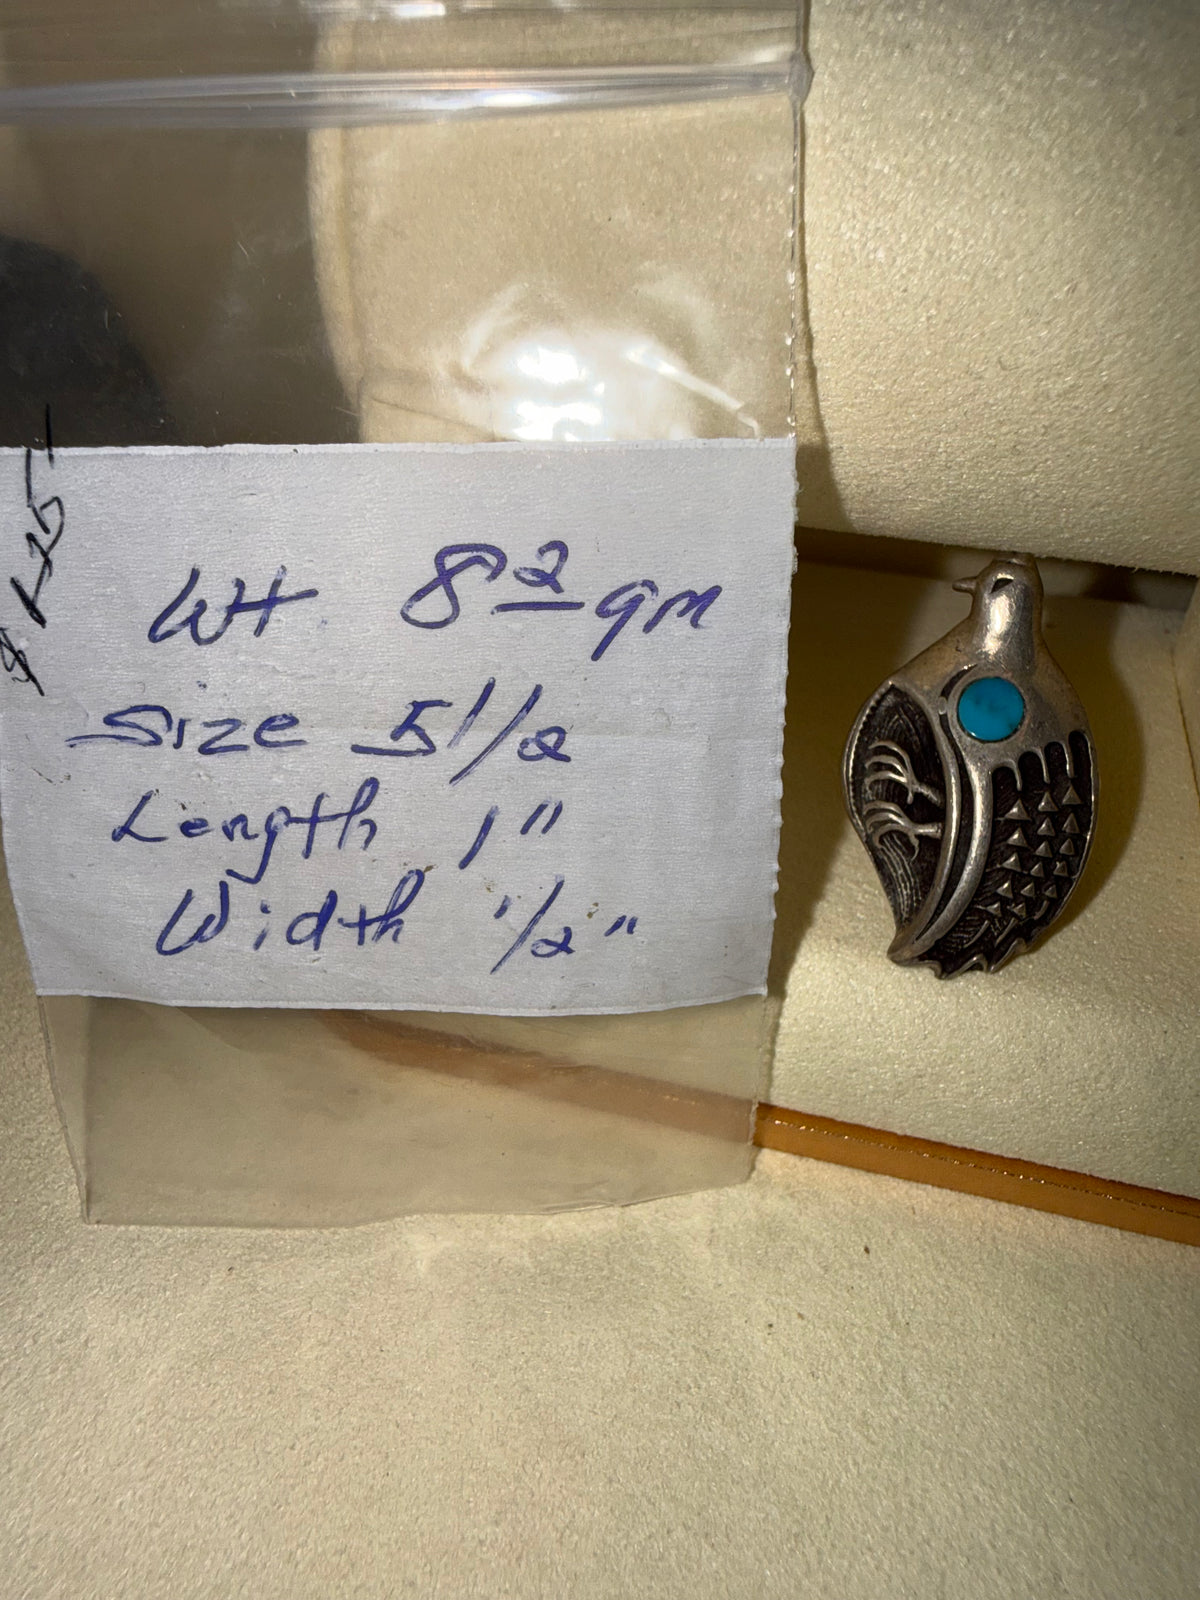 Wt. 8 2 gm
Size 5 1/2
Length 1"
Width 1/2"